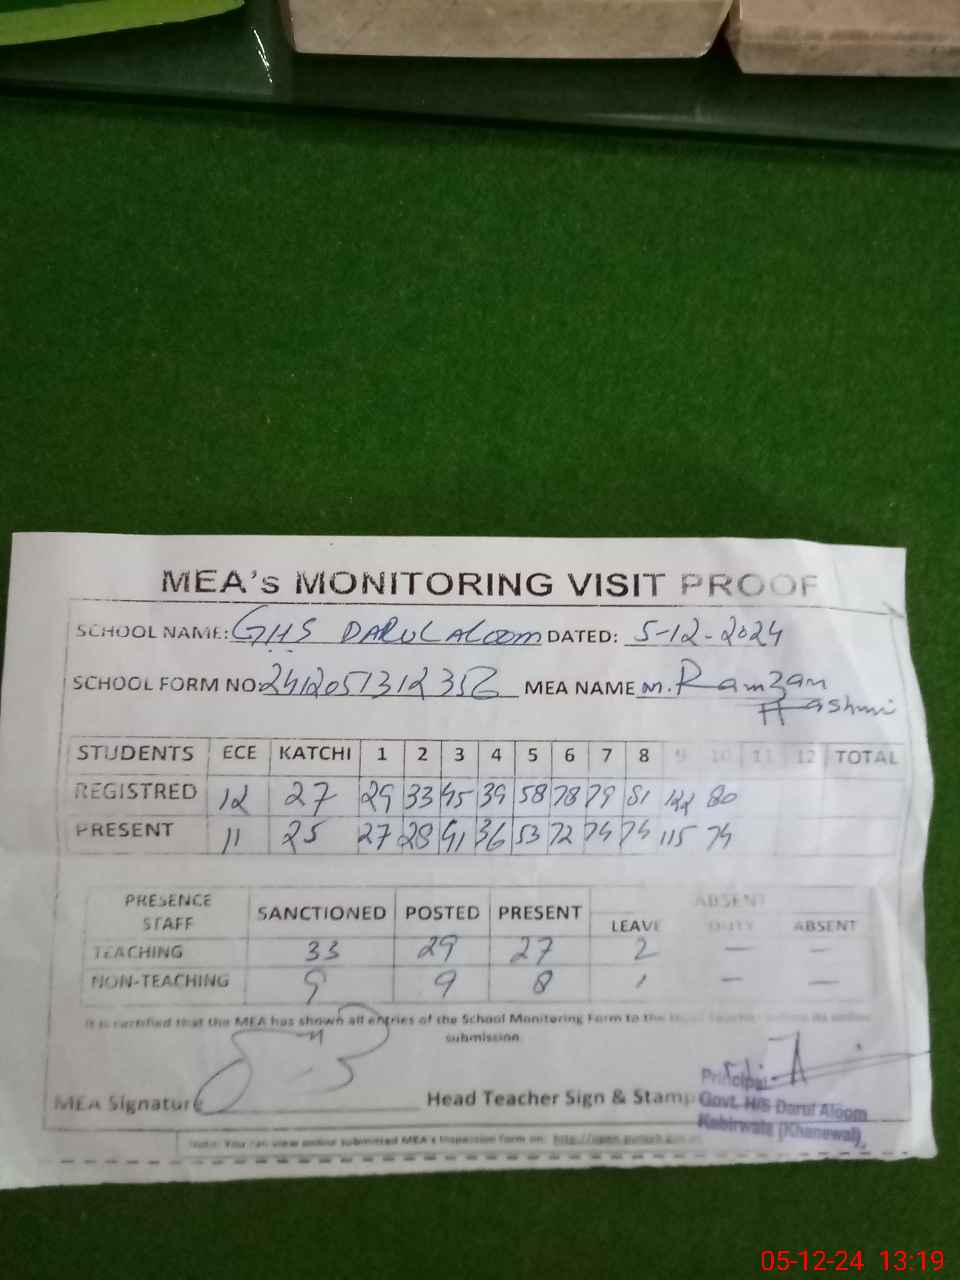 MEA's MONITORING VISIT PROOF
SCHOOL NAME: GHS DARUL ALOOM DATED: 5-12-2024
SCHOOL FORM NO: 2412051312356 MEA NAME M. Ramzan Hashmi
STUDENTS ECE KATCHI 1 2 3 4 5 6 7 8 9 10 11 12 TOTAL
REGISTRED 12 27 29 33 45 39 58 78 79 81 122 80
PRESENT 11 25 27 28 41 36 53 72 74 74 115 74
PRESENCE STAFF SANCTIONED POSTED PRESENT ABSENT
LEAVE DUTY ABSENT
TEACHING 33 29 27 2 — —
NON-TEACHING 9 9 8 1 — —
It is certified that the MEA has shown all entries of the School Monitoring Form to the Head Teacher before its online
submission
MEA Signature Head Teacher Sign & Stamp
Principal
Govt. H/S Darul Aloom
Kabirwala (Khanewal)
Note: You can view online submitted MEA's Inspection form on:
05-12-24 13:19